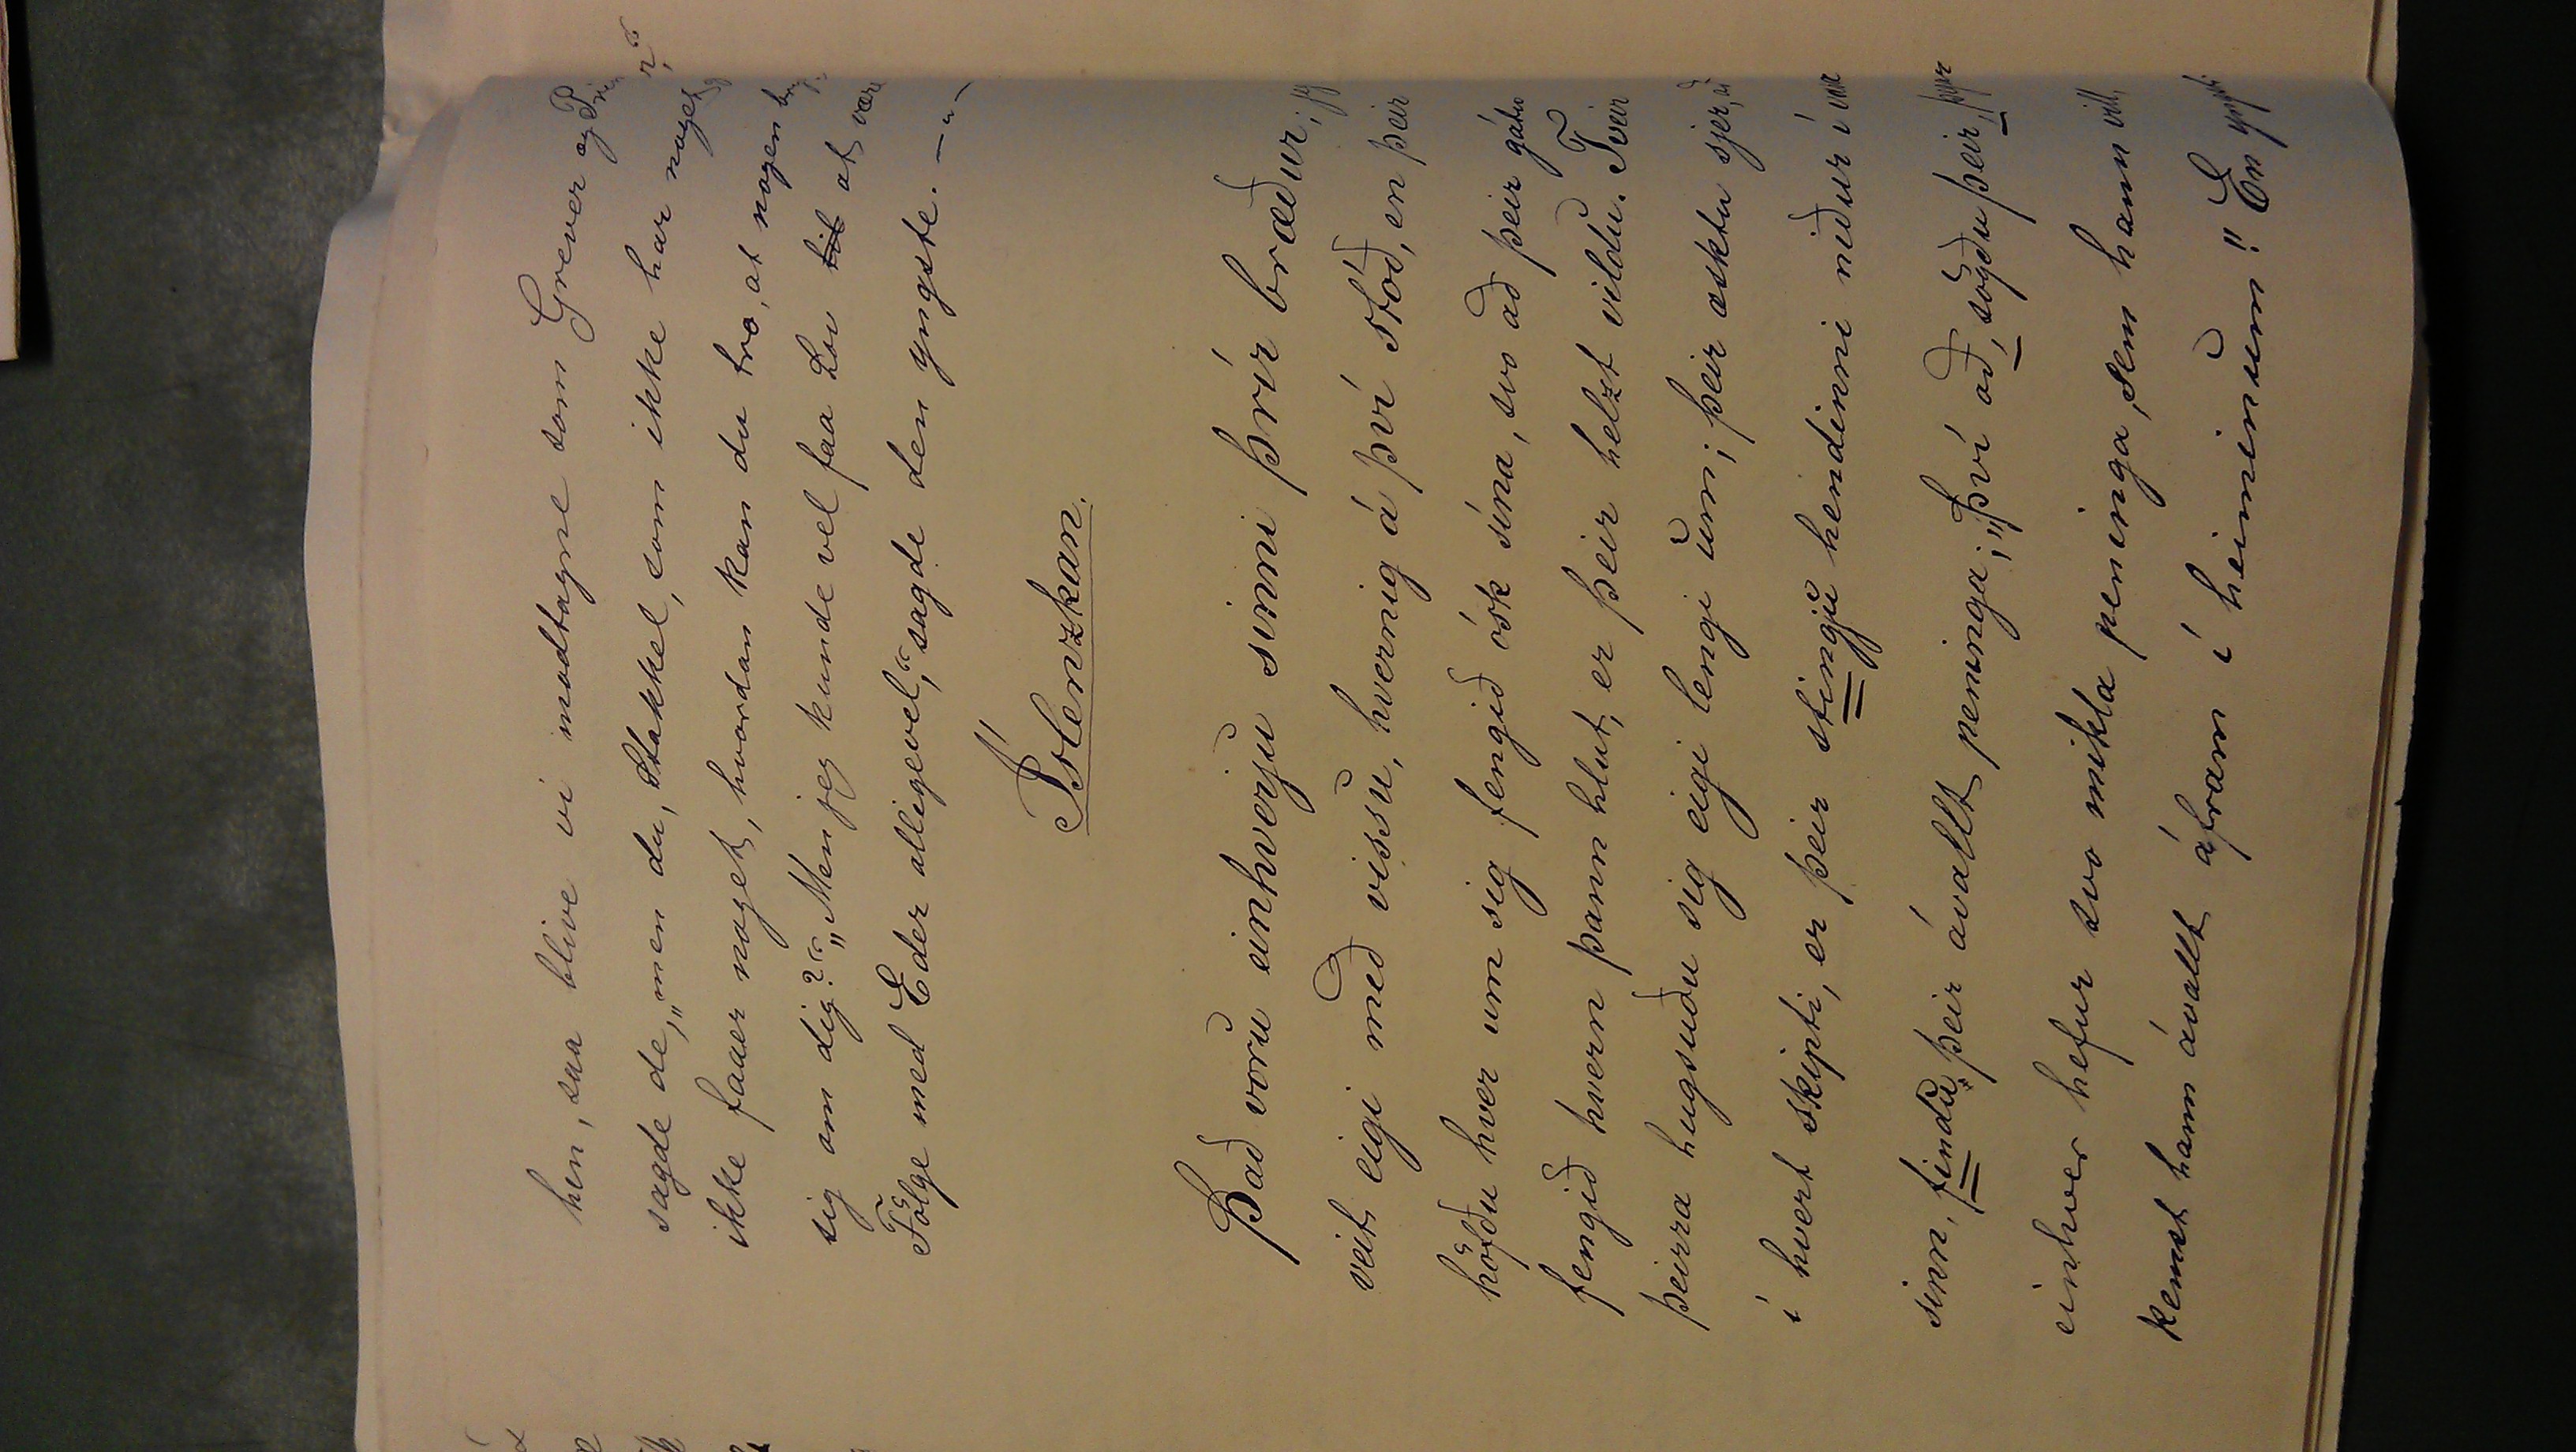 hen, saa blive vi modtagne som Grever og
sagde de, „men du, Stakkel, som ikke har noget
ikke faaer noget, hvordan kan du tro, at nogen
sig om dig?“ „Men jeg kunde vel faa Lov til at være
Følge med Eder alligevel“, sagde den yngste. — „ —
Íslenzkan.
Það voru einhverju sinni þrír bræður; jeg
veit eigi með vissu, hvernig á því stóð, en þeir
höfðu hver um sig fengið ósk sína, svo að þeir gátu
fengið hvern þann hlut, er þeir helzt vildu. Tveir
þeirra hugsuðu sig eigi lengi um; þeir æsktu sjer, að
í hvert skipti, er þeir stingju hendinni niður í vasa
sinn, findu þeir ávallt peninga; „Því að“, sögðu þeir, „þegar
einhver hefur svo mikla peninga, sem hann vill,
kemst hann ávallt áfram í heiminum!“ En yngsti